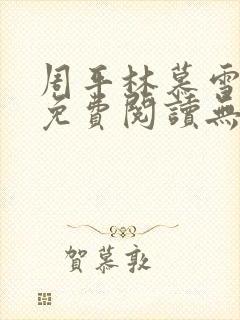 周平林慕雪
免費閱讀無
賀慕敦